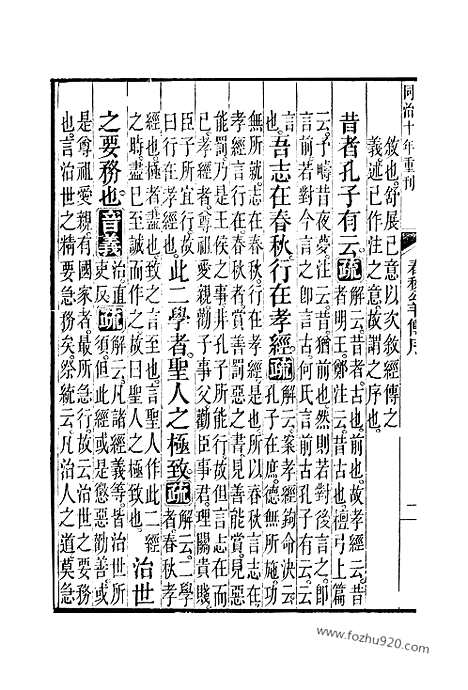 同治十年重刊
春秋公羊傳序
二
敘也舒展已意以次敘經傳之
義述已作注之意故謂之序也
昔者孔子有云疏解云昔者古也前也故孝經云昔
者明王鄭注云昔古也檀弓上篇
云予疇昔夜夢注云昔猶前也然則若對後言之即
言前若對今言之即言古何氏言前古孔子有云云
也吾志在春秋行在孝經疏解云案孝經鉤命決云
孔子在庶德無所施功
無所就志在春秋行在孝經是也所以春秋言志在
孝經言行在春秋者賞善罰惡之書見善能賞見惡
能罰乃是王侯之事非孔子所能行故但言志在而
已孝經者尊祖愛親勸子事父勸臣事君理關貴賤
臣子所宜行故
曰行在孝經也此二學者聖人之極致疏解云二學
者春秋孝
經也極者盡也致之言至也言聖人作此二經
之時盡已至誠而作之故曰聖人之極致也治世
之要務也音義治直
吏反疏解云凡諸經義等皆治世所
須但此經或是懲惡勸善或
是尊祖愛親有國家者最所急行故云治世之要務
也言治世之精要急務矣祭統云凡治人之道莫急
www.fozhu920.com